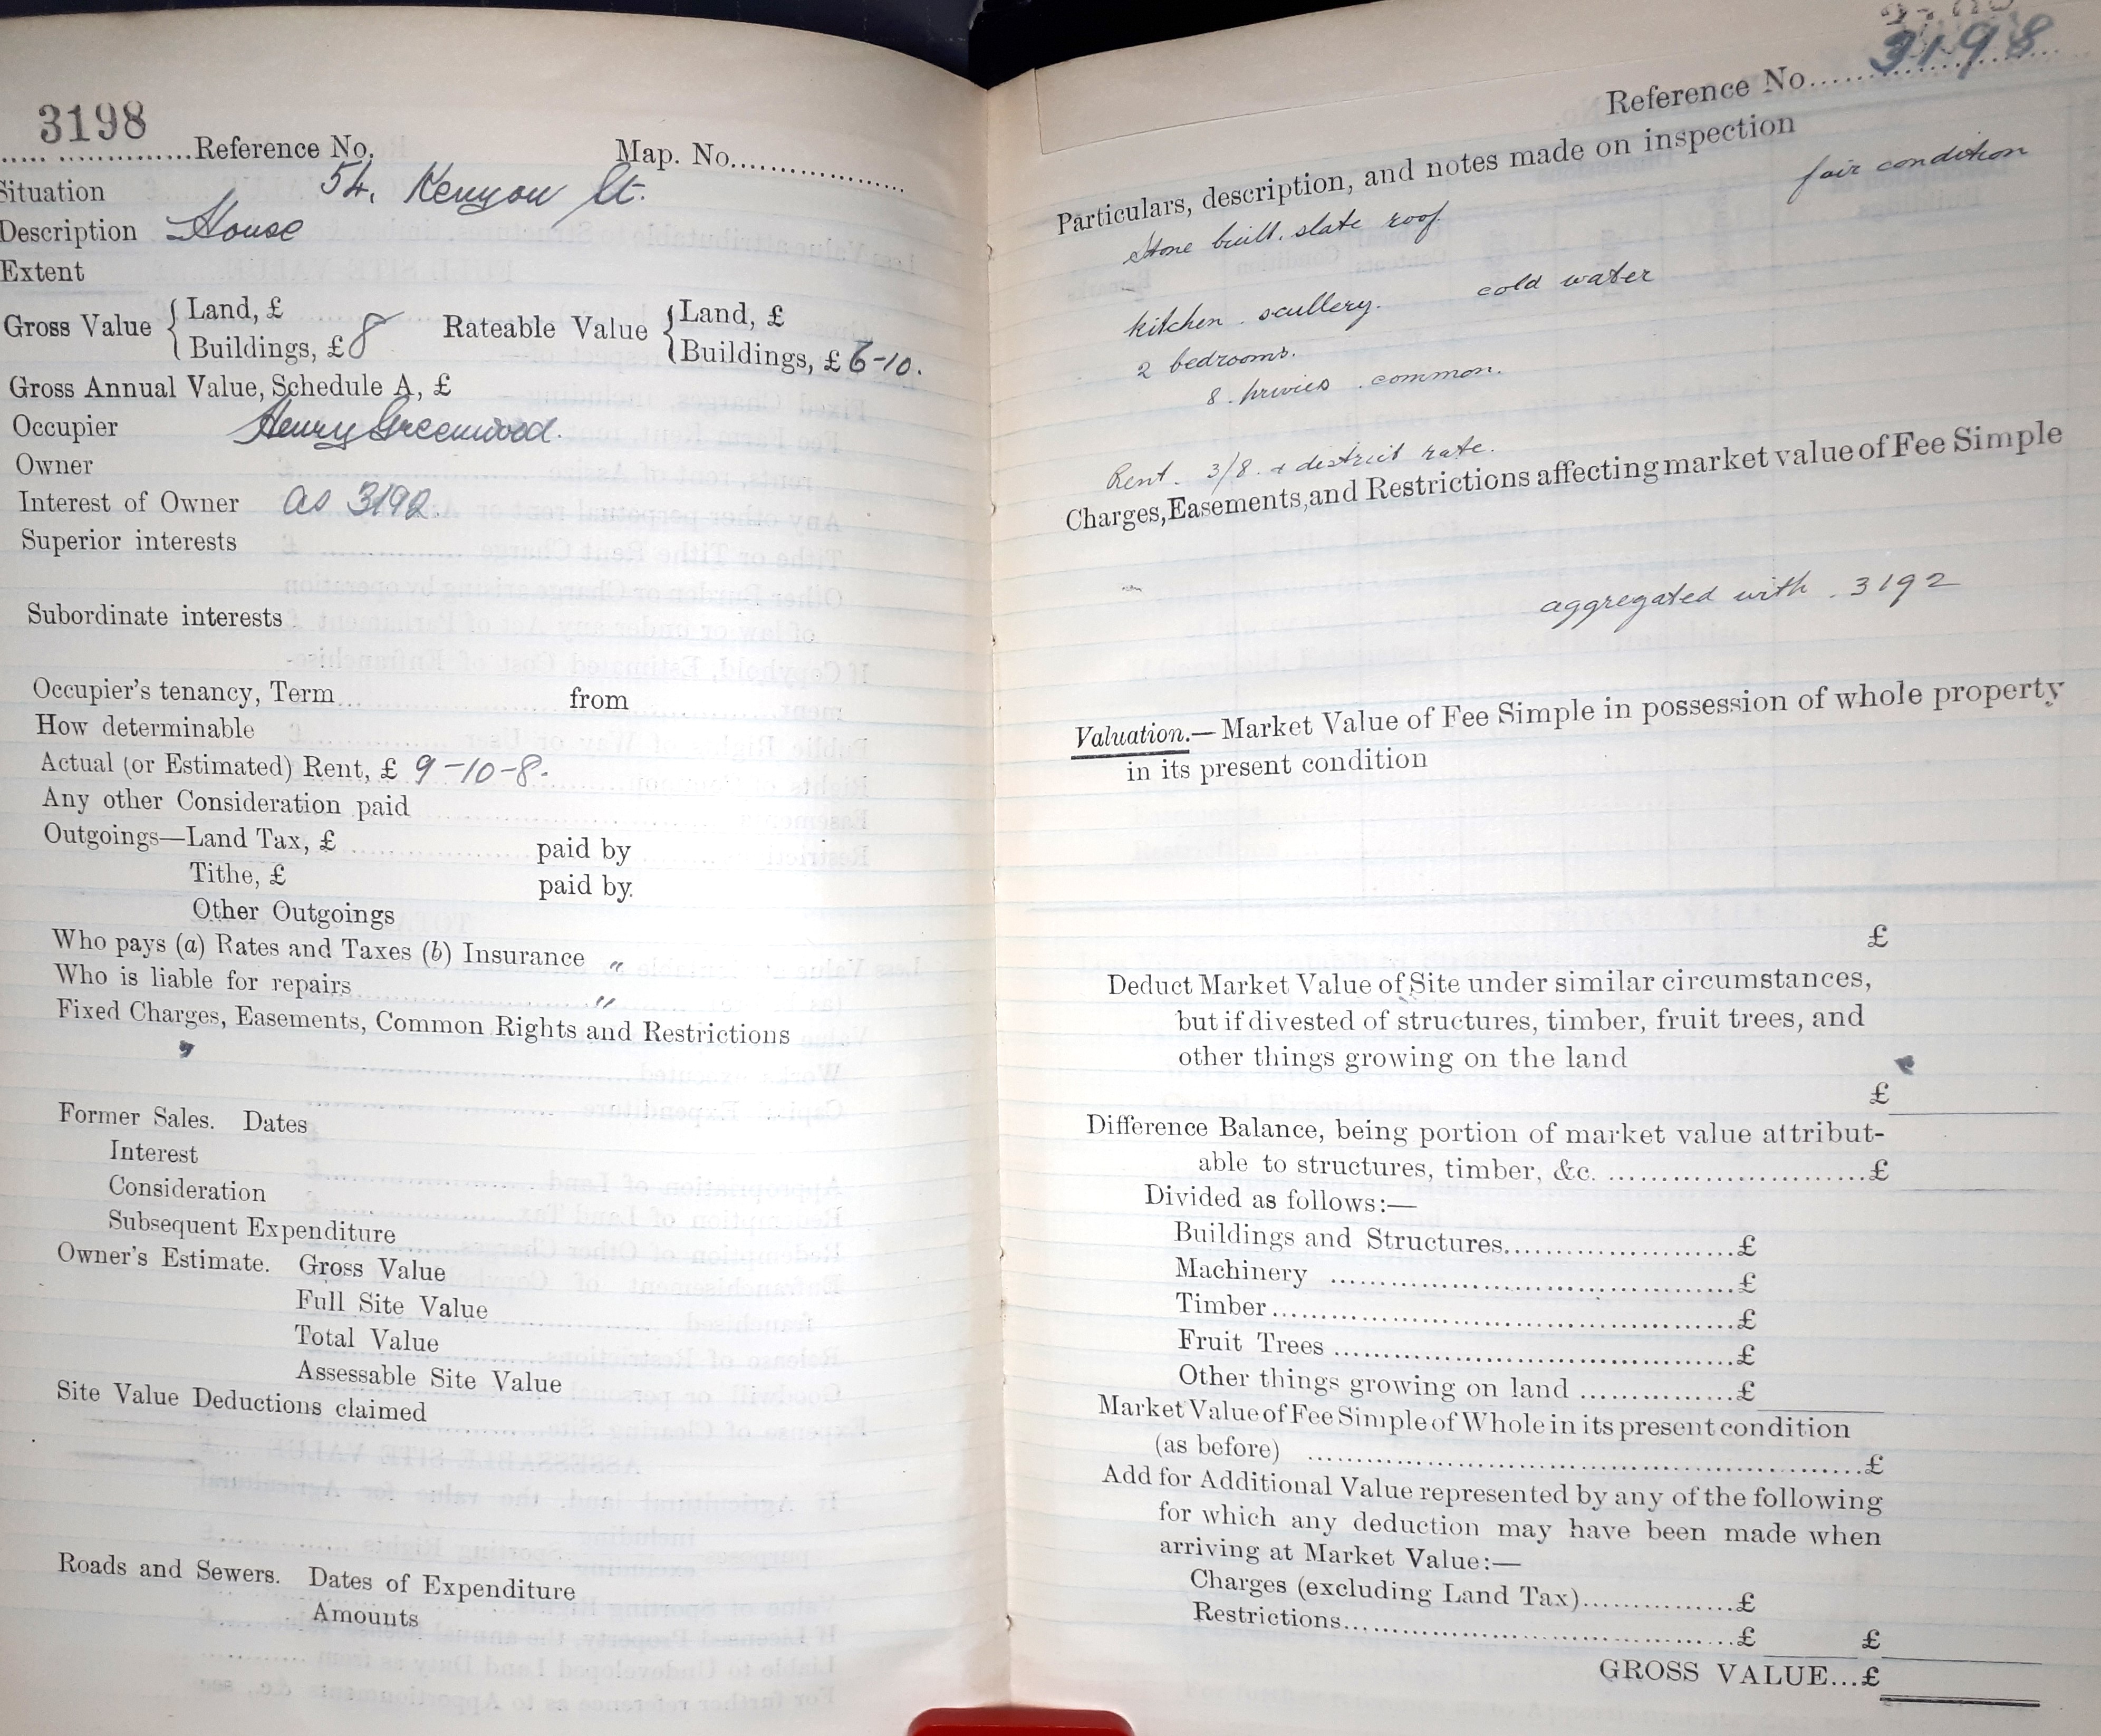 3198
Reference No. Map. No.
Situation 54, Kenyon St.
Description House
Extent
Gross Value { Land, £
Buildings, £ 8
Rateable Value { Land, £
Buildings, £ 6-10.
Gross Annual Value, Schedule A, £
Occupier Henry Greenwood.
Owner
Interest of Owner as 3192.
Superior interests
Subordinate interests
Occupier's tenancy, Term from
How determinable
Actual (or Estimated) Rent, £ 9-10-8.
Any other Consideration paid
Outgoings—Land Tax, £ paid by
Tithe, £ paid by
Other Outgoings
Who pays (a) Rates and Taxes (b) Insurance "
Who is liable for repairs "
Fixed Charges, Easements, Common Rights and Restrictions
"
Former Sales. Dates
Interest
Consideration
Subsequent Expenditure
Owner's Estimate. Gross Value
Full Site Value
Total Value
Assessable Site Value
Site Value Deductions claimed
Roads and Sewers. Dates of Expenditure
Amounts
Reference No. 3198
Particulars, description, and notes made on inspection
fair condition
Stone built. slate roof.
kitchen. scullery. cold water
2 bedrooms.
8. privies. common.
Rent. 3/8. + district rate.
Charges, Easements, and Restrictions affecting market value of Fee Simple
aggregated with. 3192
Valuation.—Market Value of Fee Simple in possession of whole property
in its present condition
£
Deduct Market Value of Site under similar circumstances,
but if divested of structures, timber, fruit trees, and
other things growing on the land
£
Difference Balance, being portion of market value attribut-
able to structures, timber, &c. £
Divided as follows:—
Buildings and Structures £
Machinery £
Timber £
Fruit Trees £
Other things growing on land £
Market Value of Fee Simple of Whole in its present condition
(as before) £
Add for Additional Value represented by any of the following
for which any deduction may have been made when
arriving at Market Value:—
Charges (excluding Land Tax) £
Restrictions £ £
GROSS VALUE...£